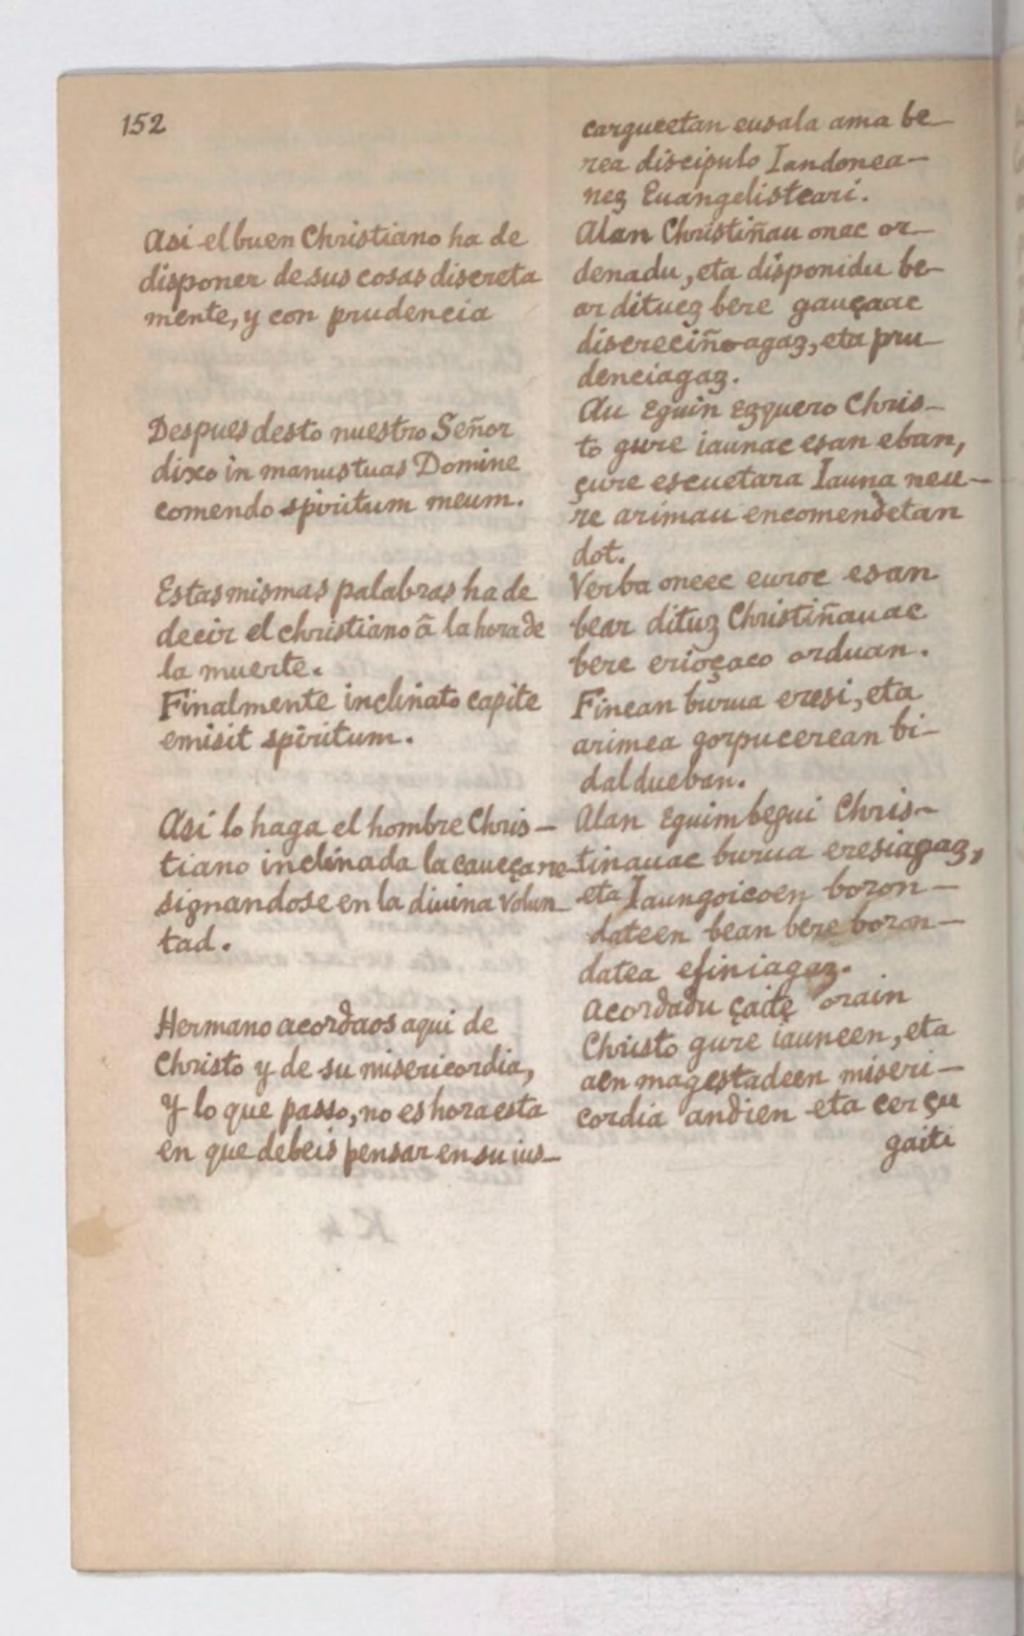 152
Asi el buen Christiano ha de
disponer de sus cosas discreta
mente, y con prudencia
Despues desto nuestro Señor
dixo in manus tuas Domine
comendo spiritum meum.
Estas mismas palabras ha de
decir el christiano ã la hora de
la muerte.
Finalmente inclinato capite
emisit spiritum.
Asi lo haga el hombre Chris-
tiano inclinada la caueça re-
signandose en la diuina volun-
tad.
Hermano acordaos aqui de
Christo y de su misericordia,
Y lo que passo, no es hora esta
en que debeis pensar en su ius-
cargueetan eusala ama be-
rea discipulo Iandonea-
nez Euangelisteari.
Alan Christiñau onac or-
denadu, eta disponidu be-
ar dituez bere gauçaac
discreciñoagaz, eta pru-
denciagaz.
Au Eguin ezquero Chris-
to gure iaunac esan eban,
çure escuetara Iauna neu-
re arimau encomendetan
dot.
Verba oneec euroc esan
bear dituz Christiñauac
bere erioçaco orduan.
Finean burua eresi, eta
arimea gorpucerean bi-
aldueban.
Alan Eguimbegui Chris-
tinauac burua eresiagaz,
eta Iaungoicoen boron-
dateen bean bere boron-
datea efiniagaz.
Acordadu çaite orain
Christo gure iauneen, eta
aen magestadeen miseri-
cordia andien eta cerçu
gaiti